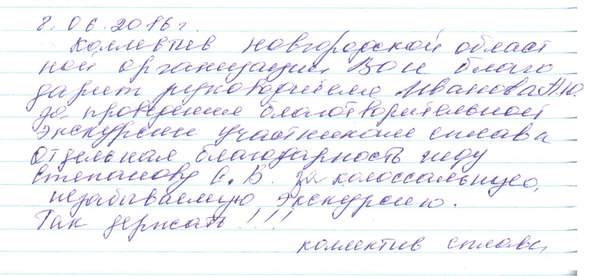 8.06.2016г.
Коллектив Новгородской област
ной организации ВОИ благо
дарит руководителя Иванова А.Ю.
за проведение благотворительной
экскурсии участникам сплава
Отдельная благодарность гиду
Степанову С. Б. за колоссальную,
незабываемую экскурсию.
Так держать!!!
коллектив сплава,